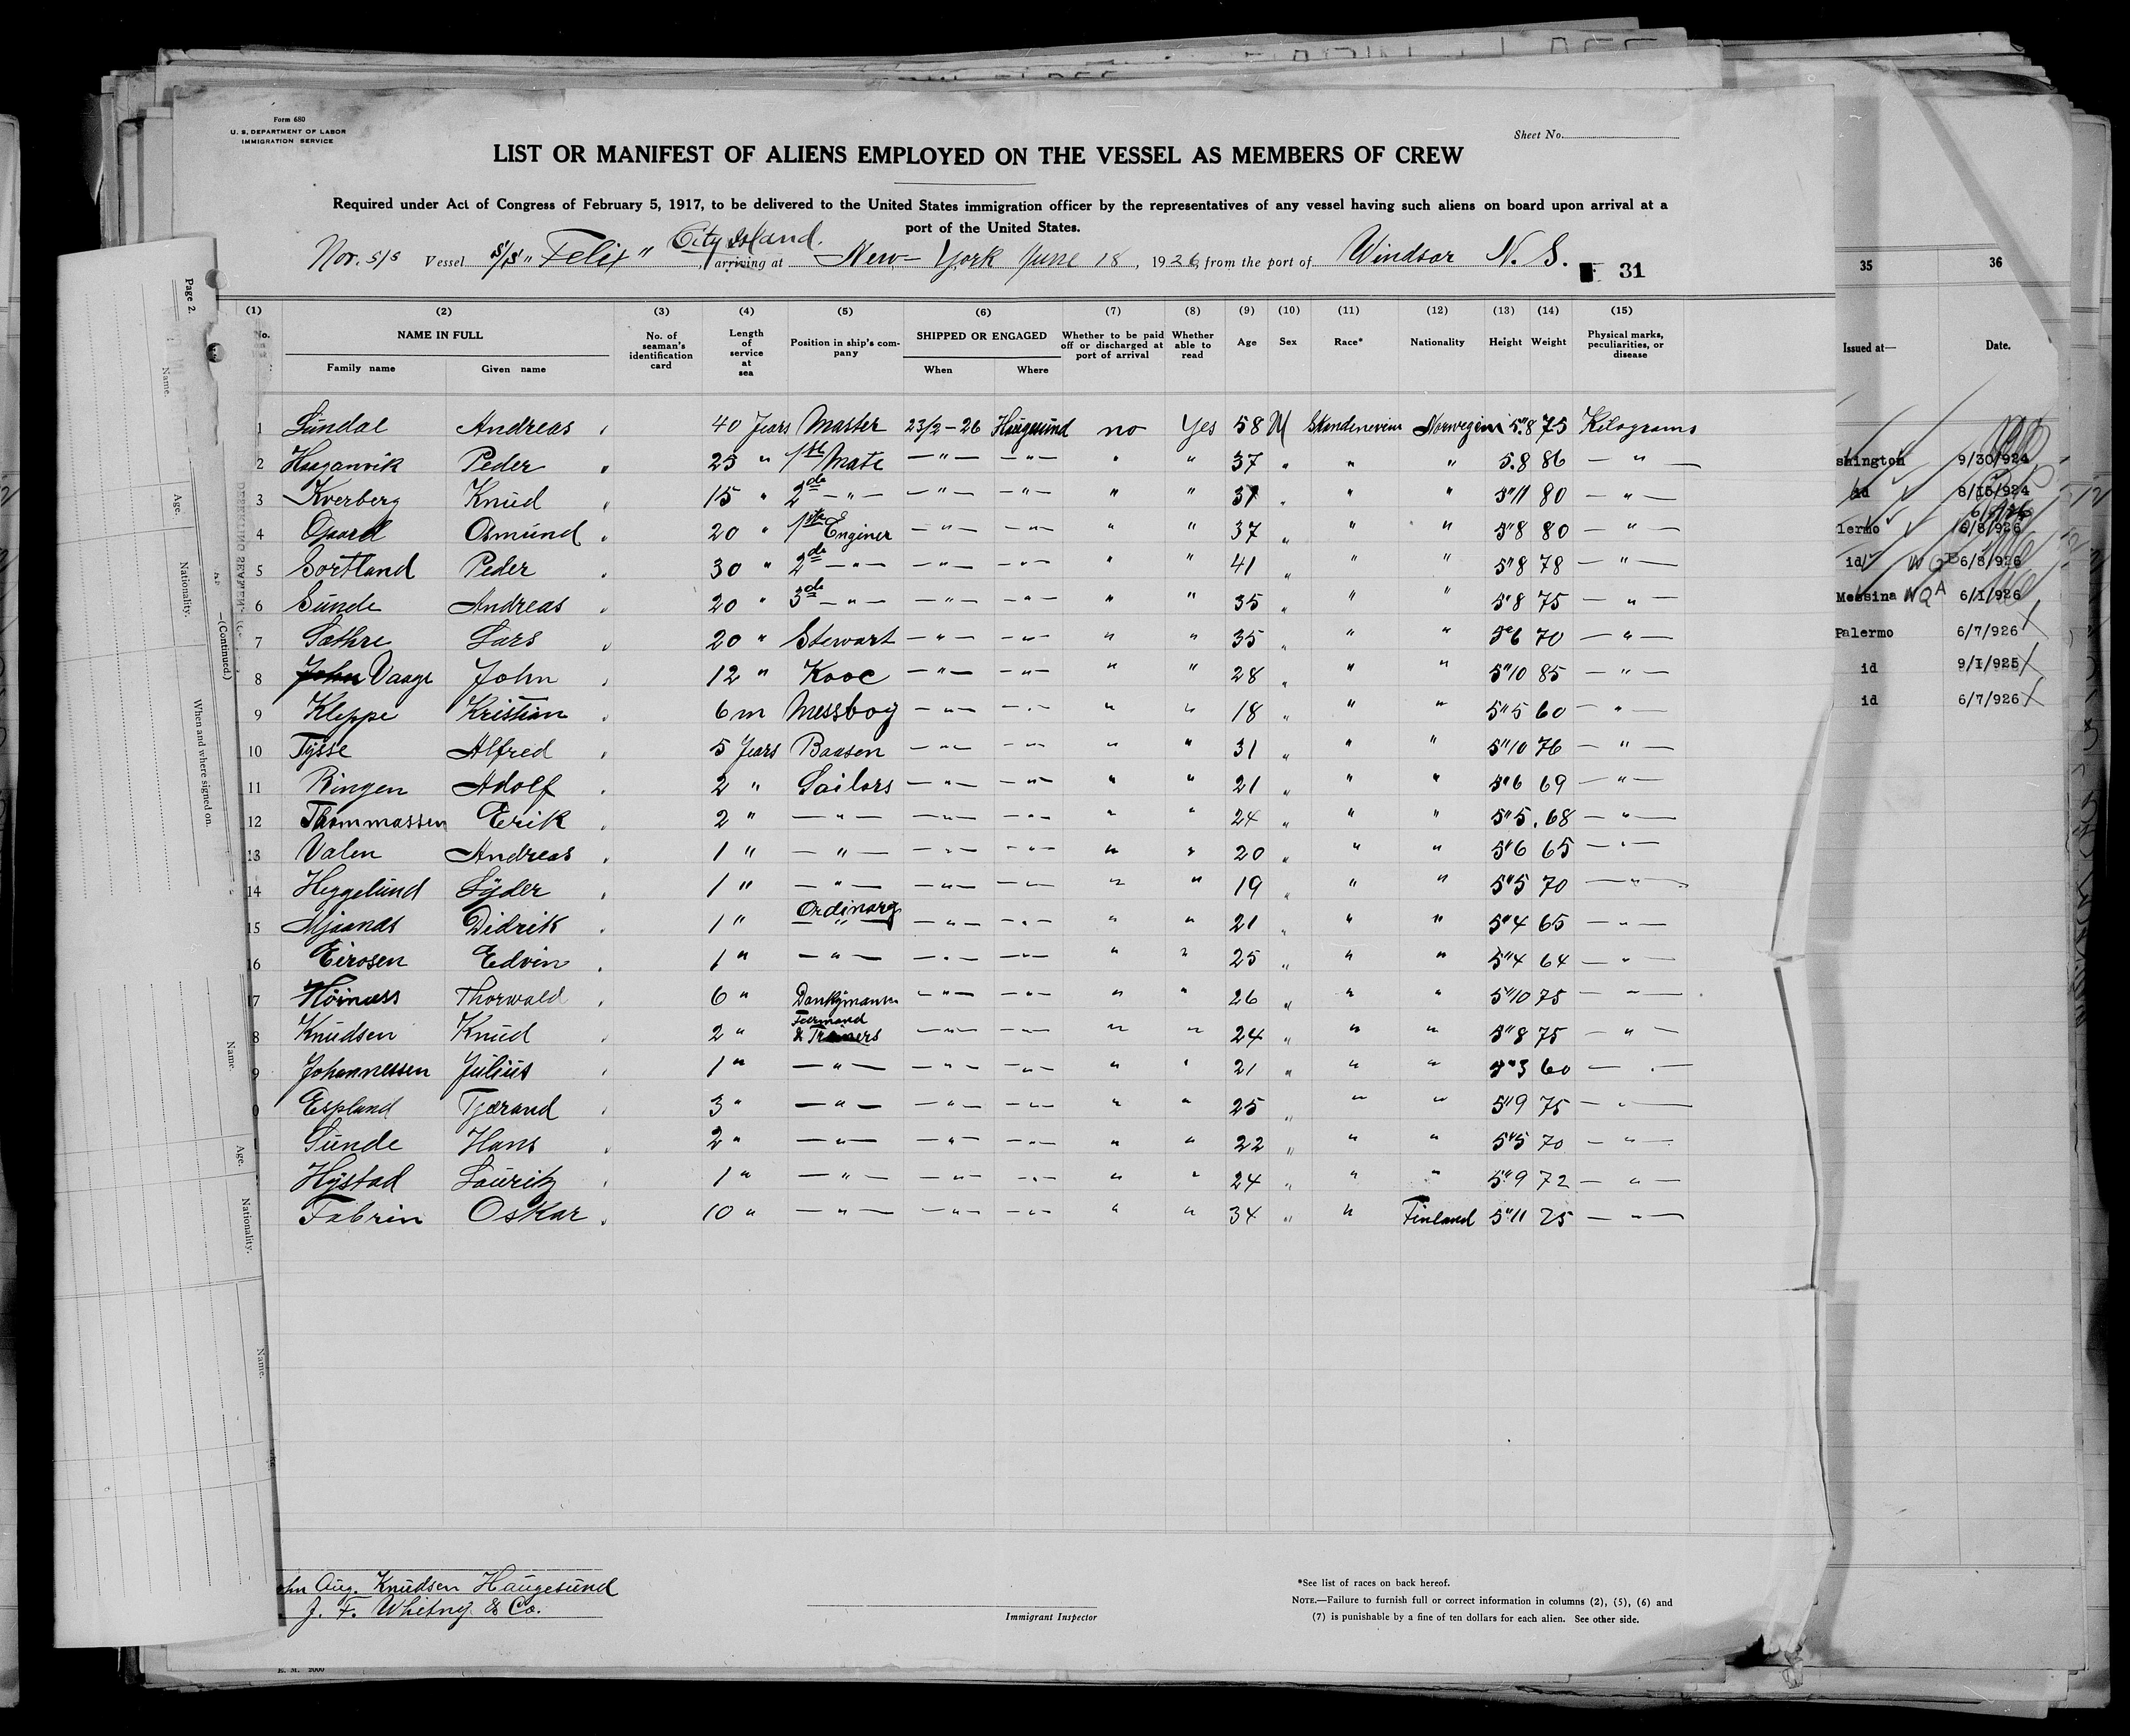 Form 680
U. S. DEPARTMENT OF LABOR
IMMIGRATION SERVICE
Sheet No.
LIST OR MANIFEST OF ALIENS EMPLOYED ON THE VESSEL AS MEMBERS OF CREW
Required under Act of Congress of February 5, 1917, to be delivered to the United States immigration officer by the representatives of any vessel having such aliens on board upon arrival at a
port of the United States.
City Island.
Nor. s/s Vessel S/S "Felix", arriving at New-York June 18, 1926, from the port of Windsor N. S. 31
(1) (2) (3) (4) (5) (6) (7) (8) (9) (10) (11) (12) (13) (14) (15)
No. NAME IN FULL Family name Given name No. of seaman's identification card Length of service at sea Position in ship's company SHIPPED OR ENGAGED When Where Whether to be paid off or discharged at port of arrival Whether able to read Age Sex Race* Nationality Height Weight Physical marks, peculiarities, or disease
1 Sundal Andreas 40 Years Master 23/2-26 Haugesund no Yes 58 M Skandenevien Norwegien 5.8 75 Kilograms
2 Haaganvik Peder 25 " 1ste Mate — " — — " — " " 37 " " " 5.8 86 — " —
3 Kverberg Knud 15 " 2de — " — — " — — " — " " 37 " " " 5"11 80 — " —
4 Osmund 20 " 1ste Enginer — " — — " — " " 37 " " " 5"8 80 — " —
5 Sortland Peder 30 " 2de — " — — " — — " — " " 41 " " " 5"8 78 — " —
6 Sunde Andreas 20 " 3de — " — — " — — " — " " 35 " " " 5"8 75 — " —
7 Sathre Lars 20 " Stewart — " — — " — " " 35 " " " 5"6 70 — " —
8 John Vaage John 12 " Kooc — " — — " — " " 28 " " " 5"10 85 — " —
9 Kleppe Kristian 6 m Messboy — " — — " — " " 18 " " " 5"5 60 — " —
10 Tysse Alfred 5 Years Baasen — " — — " — " " 31 " " " 5"10 76 — " —
11 Ringen Adolf 2 " Sailors — " — — " — " " 21 " " " 5"6 69 — " —
12 Thommassen Erik 2 " — " — — " — — " — " " 24 " " " 5"5. 68 — " —
13 Valen Andreas 1 " — " — — " — — " — " " 20 " " " 5"6 65 — " —
14 Heggelund Lyder 1 " — " — — " — — " — " " 19 " " " 5"5 70 — " —
15 Mjaanes Didrik 1 " Ordinary — " — — " — " " 21 " " " 5"4 65 — " —
16 Eirosen Edvin 1 " — " — — " — — " — " " 25 " " " 5"4 64 — " —
17 Thorwald 6 " Donkymann — " — — " — " " 26 " " " 5"10 75 — " —
8 Knudsen Knud 2 " & — " — — " — " " 24 " " " 5"8 75 — " —
9 Johannessen Julius 1 " — " — — " — — " — " " 21 " " " 5"3 60 — " —
0 Espland Tjerand 3 " — " — — " — — " — " " 25 " " " 5"9 75 — " —
1 Sunde Hans 2 " — " — — " — — " — " " 22 " " " 5"5 70 — " —
Hystad Lauritz 1 " — " — — " — — " — " " 24 " " " 5"9 72 — " —
Fabrin Oskar 10 " — " — — " — — " — " " 34 " " Finland 5"11 75 — " —
Aug. Knudsen Haugesund
J. F. Whitney & Co.
Immigrant Inspector
*See list of races on back hereof.
NOTE.—Failure to furnish full or correct information in columns (2), (5), (6) and
(7) is punishable by a fine of ten dollars for each alien. See other side.
Page 2.
Name.
Age.
Nationality.
—(Continued.)
When and where signed on.
Name.
Age.
Nationality.
Name.
35 36
Issued at— Date.
shington 9/30/924
id 8/15/924
lermo 6/8/926
id 6/8/926
Messina 6/1/926
Palermo 6/7/926
id 9/1/925
id 6/7/926